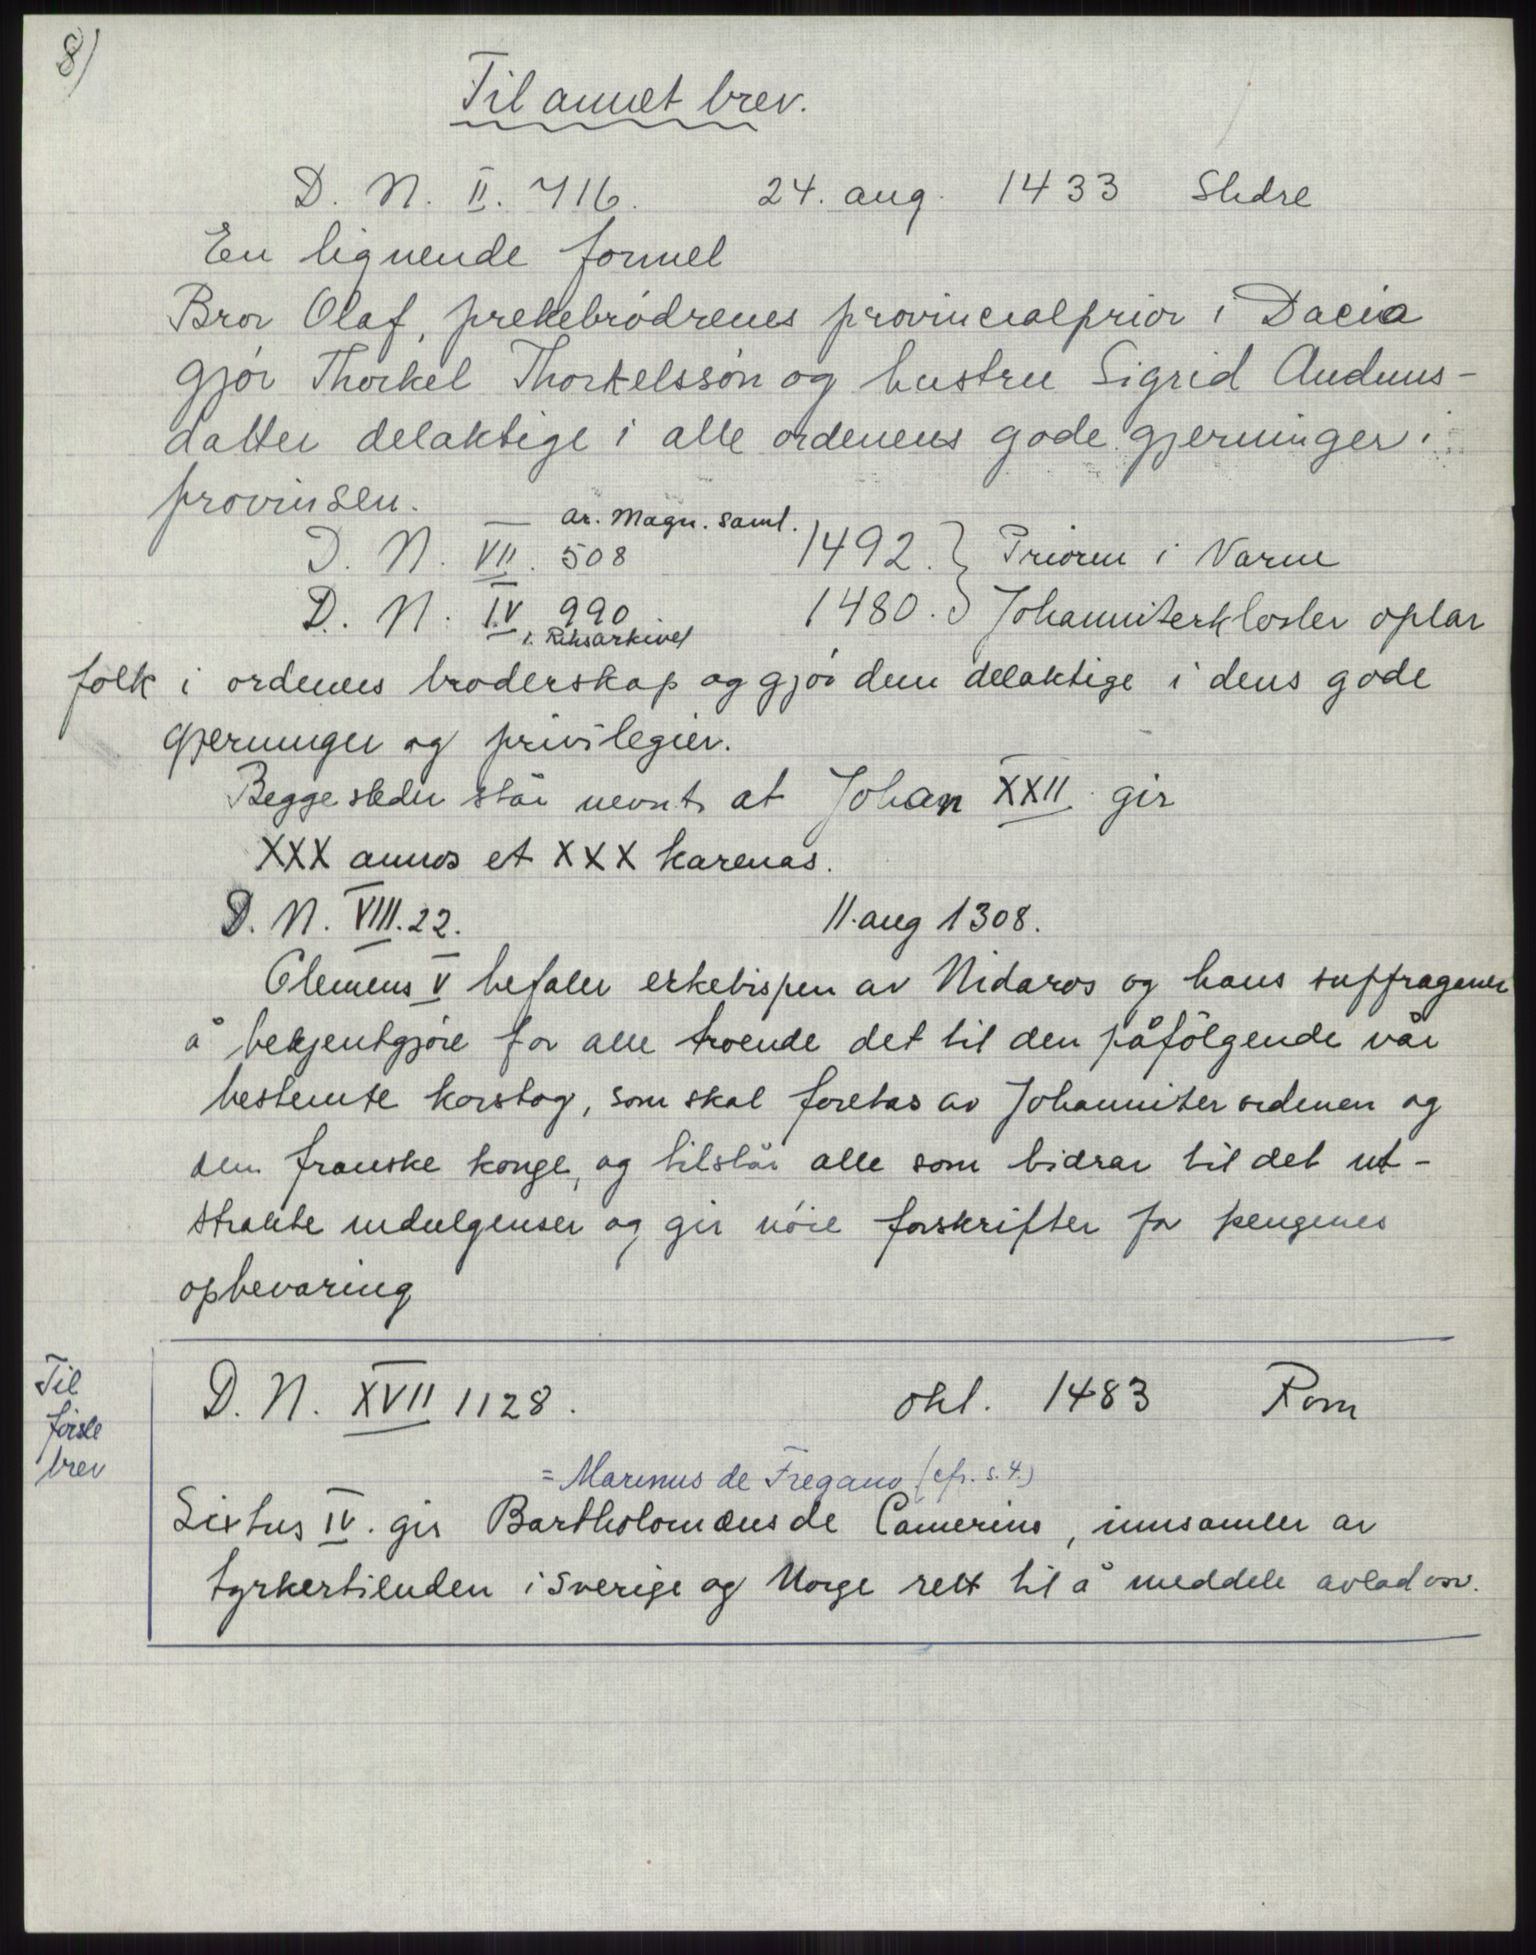 8)
Til annet brev.
D. N. II. 716. 24. aug. 1433 Slidre
En lignende formel
Bror Olaf, prekebrödrenes provincialprior i Dacia
gjör Thorkel Thorkelssön og hustru Sigrid Auduns-
datter delaktige i alle ordenens gode gjerninger i
provinsen.
— ar. Magn. saml.
D. N. VII. 508 1492. } Prioren i Varne
D. N. IV 990 1480. } Johanniterkloster optar
i. Riksarkivet
folk i ordenens broderskap og gjör dem delaktige i dens gode
gjerninger og privilegier.
Begge steder står nevnt at Johan XXII gir
XXX annos et XXX karenas.
D. N. VIII. 22. 11. aug 1308.
Clemens V befaler erkebispen av Nidaros og hans suffraganer
å bekjentgjöre for alle troende det til den påfölgende vår
bestemte korstog, som skal foretas av Johanniterordenen og
den franske konge, og tilstår alle som bidrar til det ut-
strakte indulgenser og gir nöie forskrifter for pengenes
opbevaring
Til
förste
brev
D. N. XVII 1128. okt. 1483 Rom
= Marinus de Fregano (cfr. s. 4.)
Sixtus IV. gir Bartholomæus de Camerino, innsamler av
tyrkertienden i Sverige og Norge rett til å meddele avlad osv.